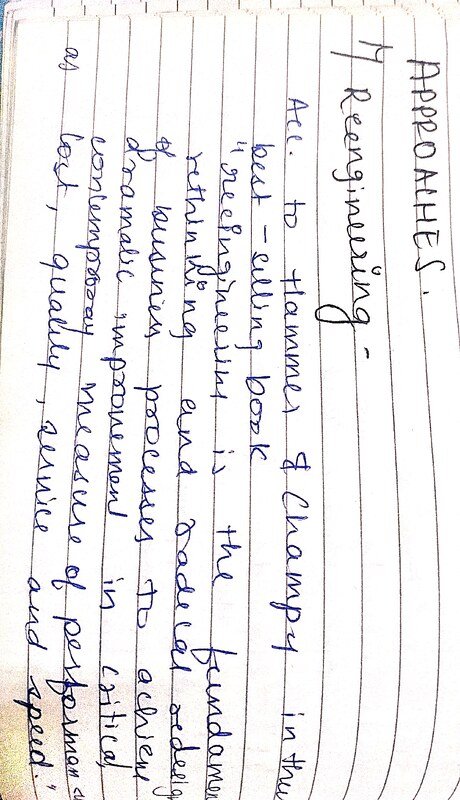 APPROACHES.
1) Reengineering -
Acc. to Hammer & Champy in their
best - selling book
"reeingineering is the fundamen
rethinking and radecal redesig
of business processes to achieve
dramatic improvement in critical
contemporary measure of performan
as cost, quality, service and speed."